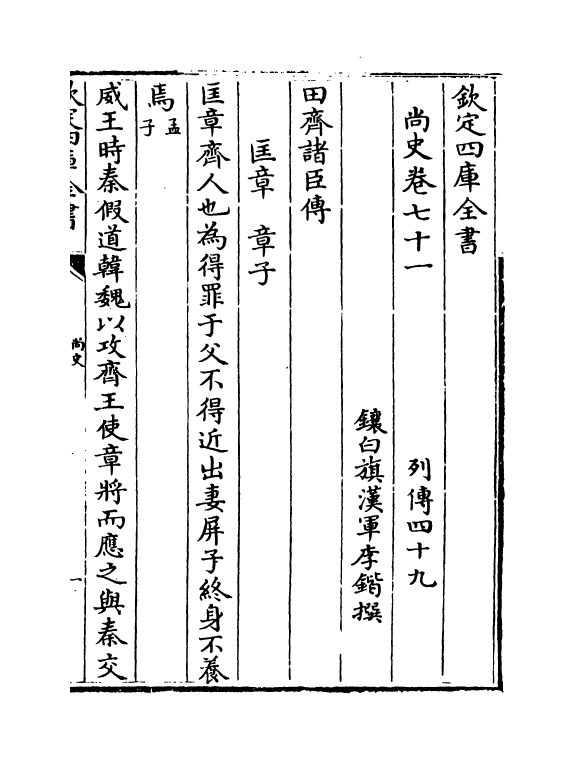 欽定四庫全書
尚史卷七十一　　　　　列傳四十九
鑲白旗漢軍李鍇撰
田齊諸臣傳
匡章　章子
匡章齊人也為得罪于父不得近出妻屏子終身不養
焉孟子
威王時秦假道韓魏以攻齊王使章將而應之與秦交
欽定四庫全書
尚史
一